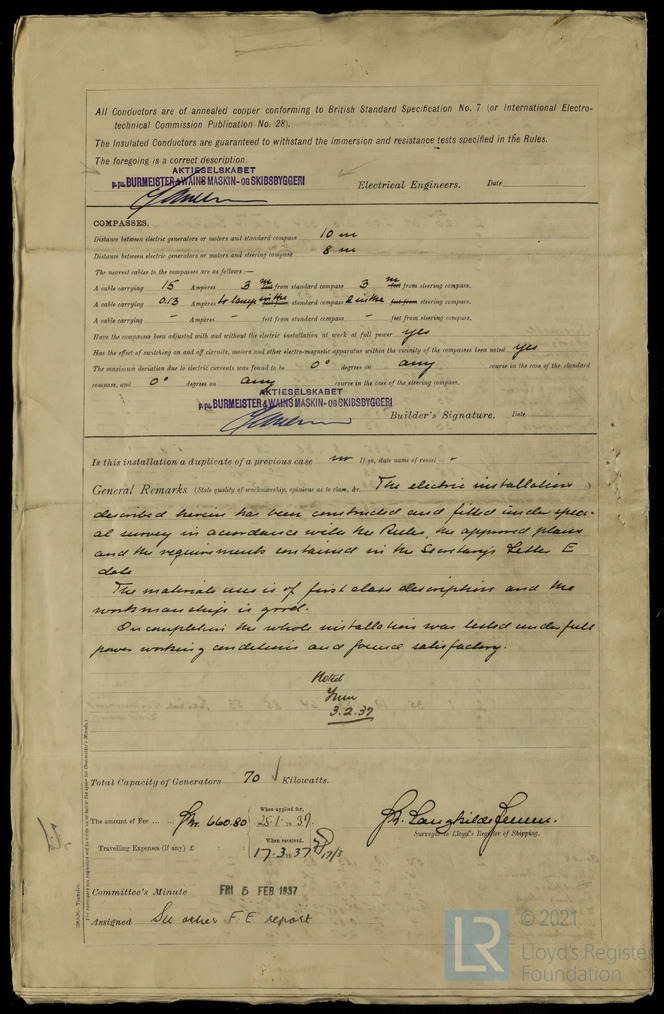 All Conductors are of annealed copper conforming to British Standard Specification No. 7 (or International Electro-
technical Commission Publication No. 28).
The Insulated Conductors are guaranteed to withstand the immersion and resistance tests specified in the Rules.
The foregoing is a correct description.
AKTIESELSKABET
p.pa. BURMEISTER & WAINS MASKIN- OG SKIBSBYGGERI
Electrical Engineers. Date
COMPASSES.
Distance between electric generators or motors and standard compass 10 m
Distance between electric generators or motors and steering compass 8 m
The nearest cables to the compasses are as follows:—
A cable carrying 15 Ampères 3 m feet from standard compass 3 m feet from steering compass.
A cable carrying 0.13 Ampères to lamp in the standard compass & in the feet from steering compass.
A cable carrying - Ampères - feet from standard compass - feet from steering compass.
Have the compasses been adjusted with and without the electric installation at work at full power yes
Has the effect of switching on and off circuits, motors and other electro-magnetic apparatus within the vicinity of the compasses been noted yes
The maximum deviation due to electric currents was found to be 0° degrees on any course in the case of the standard
compass, and 0° degrees on any course in the case of the steering compass.
AKTIESELSKABET
p.pa. BURMEISTER & WAINS MASKIN- OG SKIBSBYGGERI
Builder's Signature. Date
Is this installation a duplicate of a previous case no If so, state name of vessel -
General Remarks (State quality of workmanship, opinions as to class, &c. The electric installation
described herein has been constructed and fitted under speci-
al survey in accordance with the Rules, the approved plans
and the requirements contained in the Secretary's Letter E
date
The materials used is of first class description and the
workmanship is good.
On completion the whole installation was tested under full
power working conditions and found satisfactory.
Noted
3.2.37
Total Capacity of Generators 70 Kilowatts.
The amount of Fee ... ... Kr. 660.80
When applied for,
28.1.1937.
Surveyor to Lloyd's Register of Shipping.
Travelling Expenses (if any) £
When received,
17.3.1937 17/3
Committee's Minute FRI 5 FEB 1937
Assigned See other F.E. report
© 2021
LR
Lloyd's Register
Foundation